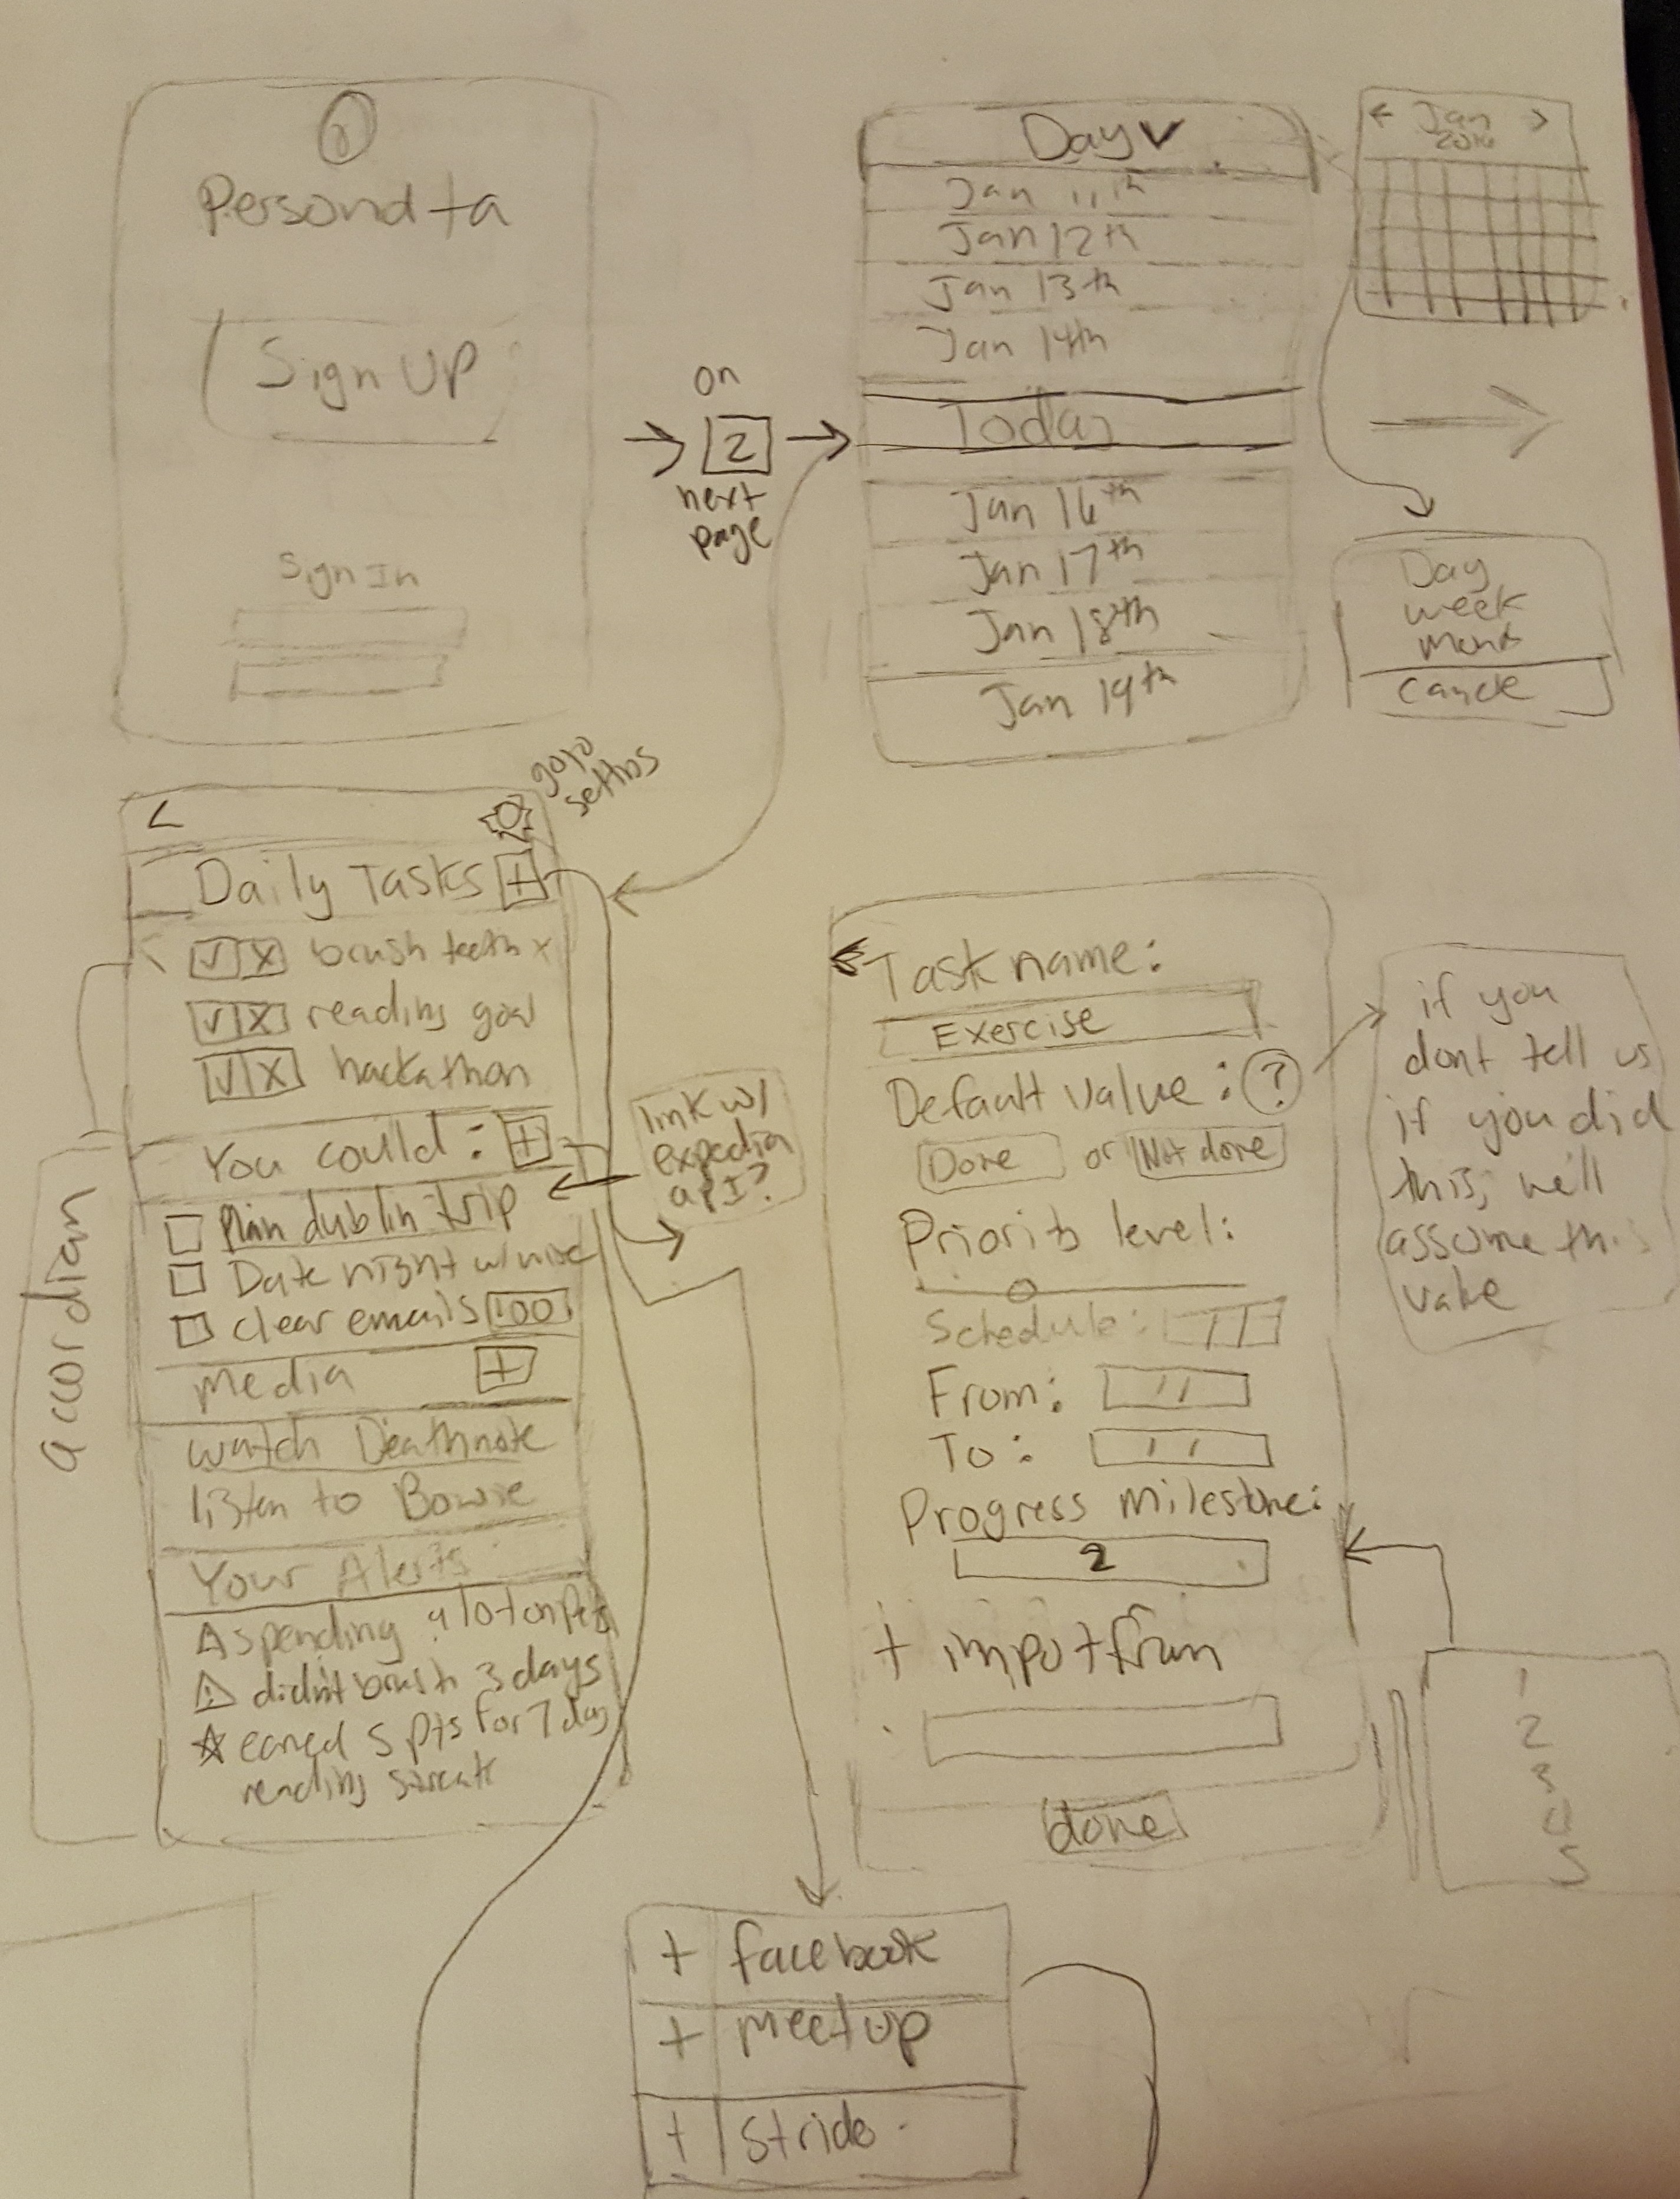 Persondta
Sign Up
Sign In
on
2
next
page
Day
Jan 11th
Jan 12th
Jan 13th
Jan 14th
Today
Jan 16th
Jan 17th
Jan 18th
Jan 19th
Jan
2016
Day
week
Month
cancle
goto
settins
<
Daily Tasks +
✓ X brush teeth x
✓ X reading goal
✓ X hackathon
You could: +
Plan dublin trip
Date night w/
clear emails 100
Media +
watch Deathnote
listen to Bowie
Your Alerts
spending a lot on
didnt brush 3 days
earned 5 pts for 7 day
reading streak
accordian
link w/
expedia
apI?
Task name:
Exercise
Default value: ?
Done or Not done
Priority level:
Schedule: / /
From: / /
To: / /
Progress Milestone:
2
+ impot from
done
if you
dont tell us
if you did
this, we'll
assume this
value
1
2
3
4
5
+ facebook
+ Meetup
+ Stride